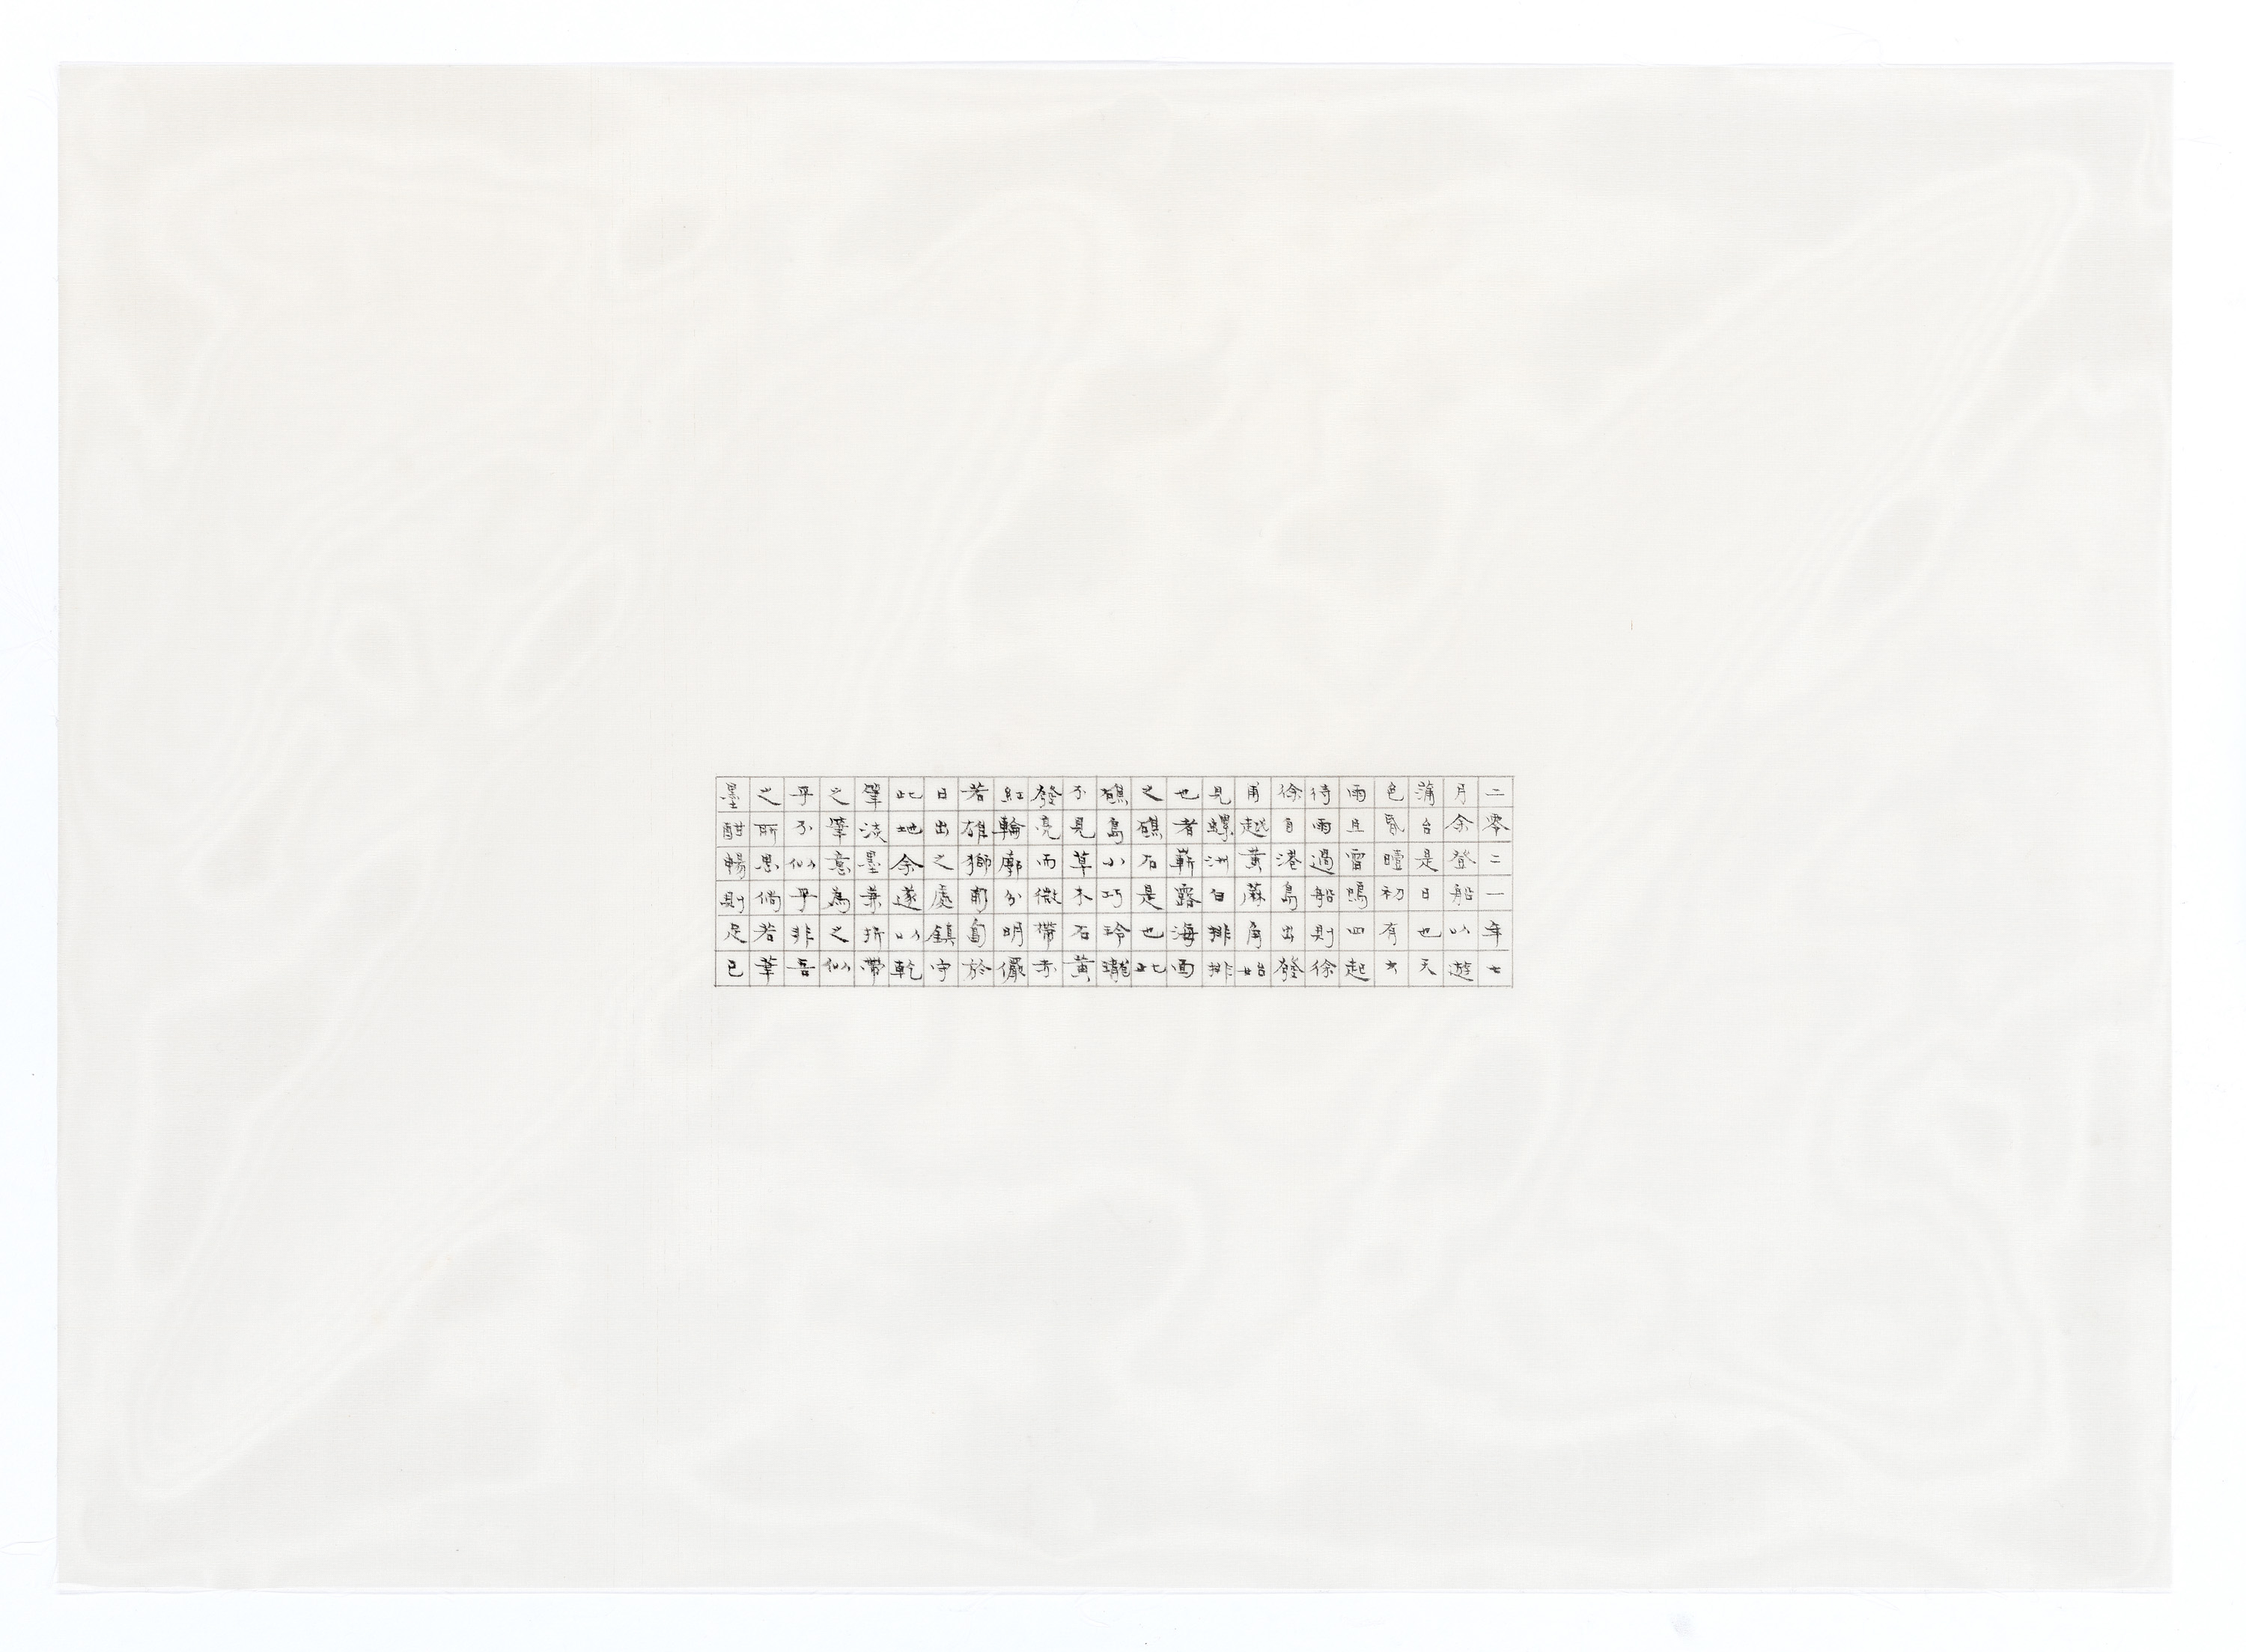 二零二一年七
月余登船以遊
蒲台是日也天
色昏曀初有大
雨且雷鳴四起
待雨過船則徐
徐自港島出發
甫越黃蔴角始
見螺洲白排排
也者嶄露海面
之礁石是也此
礁島小巧玲瓏
不見草木石黃
發亮而微帶赤
紅輪廓分明儼
若雄獅匍匐於
日出之處鎮守
此地余遂以乾
筆淡墨兼折帶
之筆意為之似
乎不似乎非吾
之所思倘若筆
墨酣暢則足已